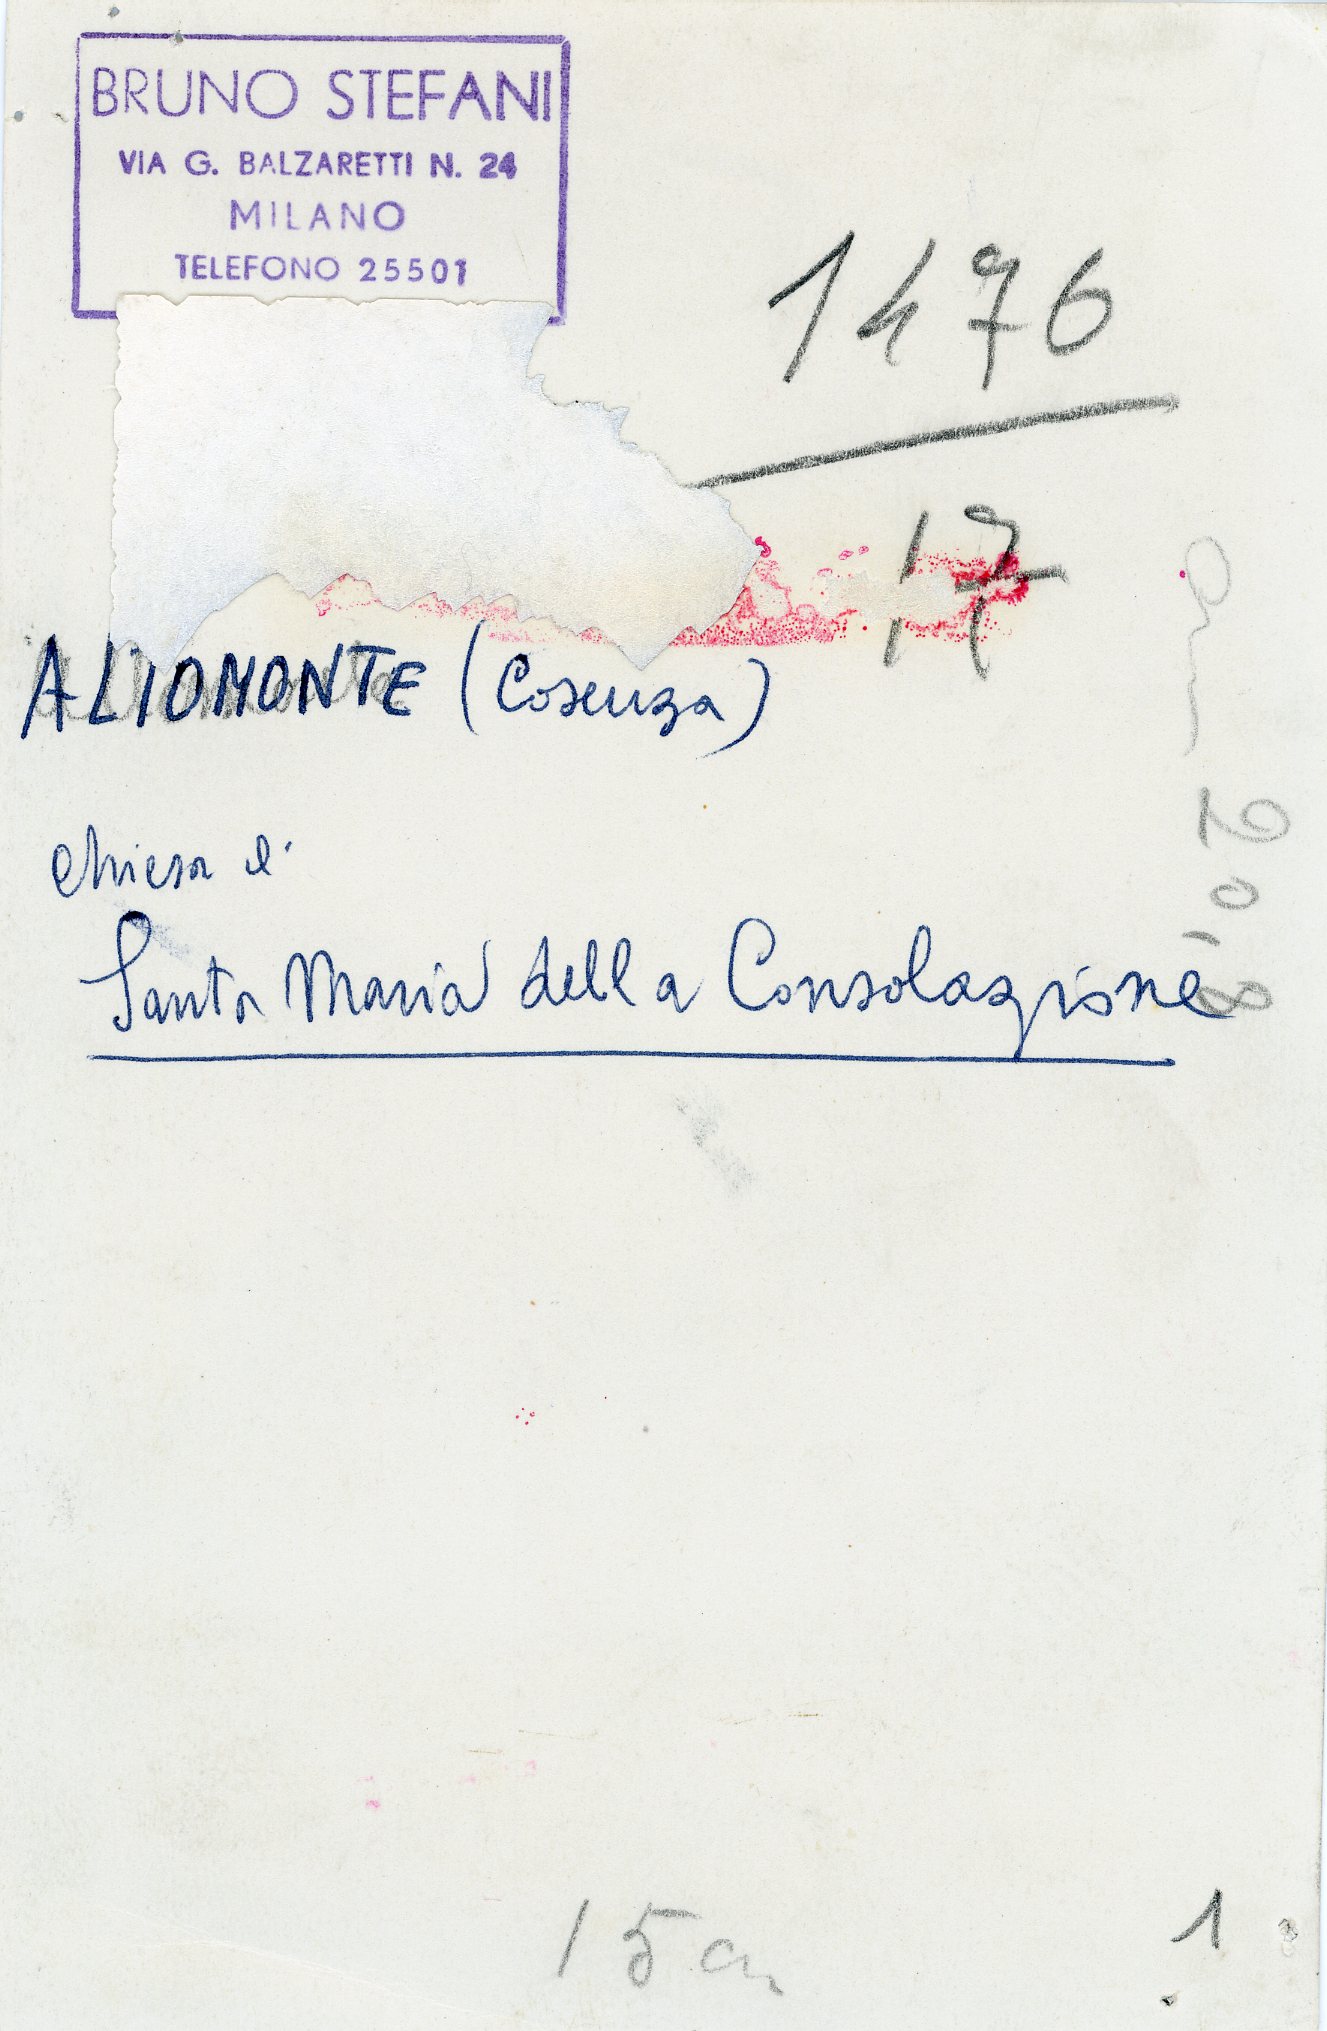 BRUNO STEFANI
VIA G. BALZARETTI N. 24
MILANO
TELEFONO 25501
1476
17
ALTOMONTE (Cosenza)
Chiesa di
Santa Maria della Consolazione
20,8 cm
15 cm
1